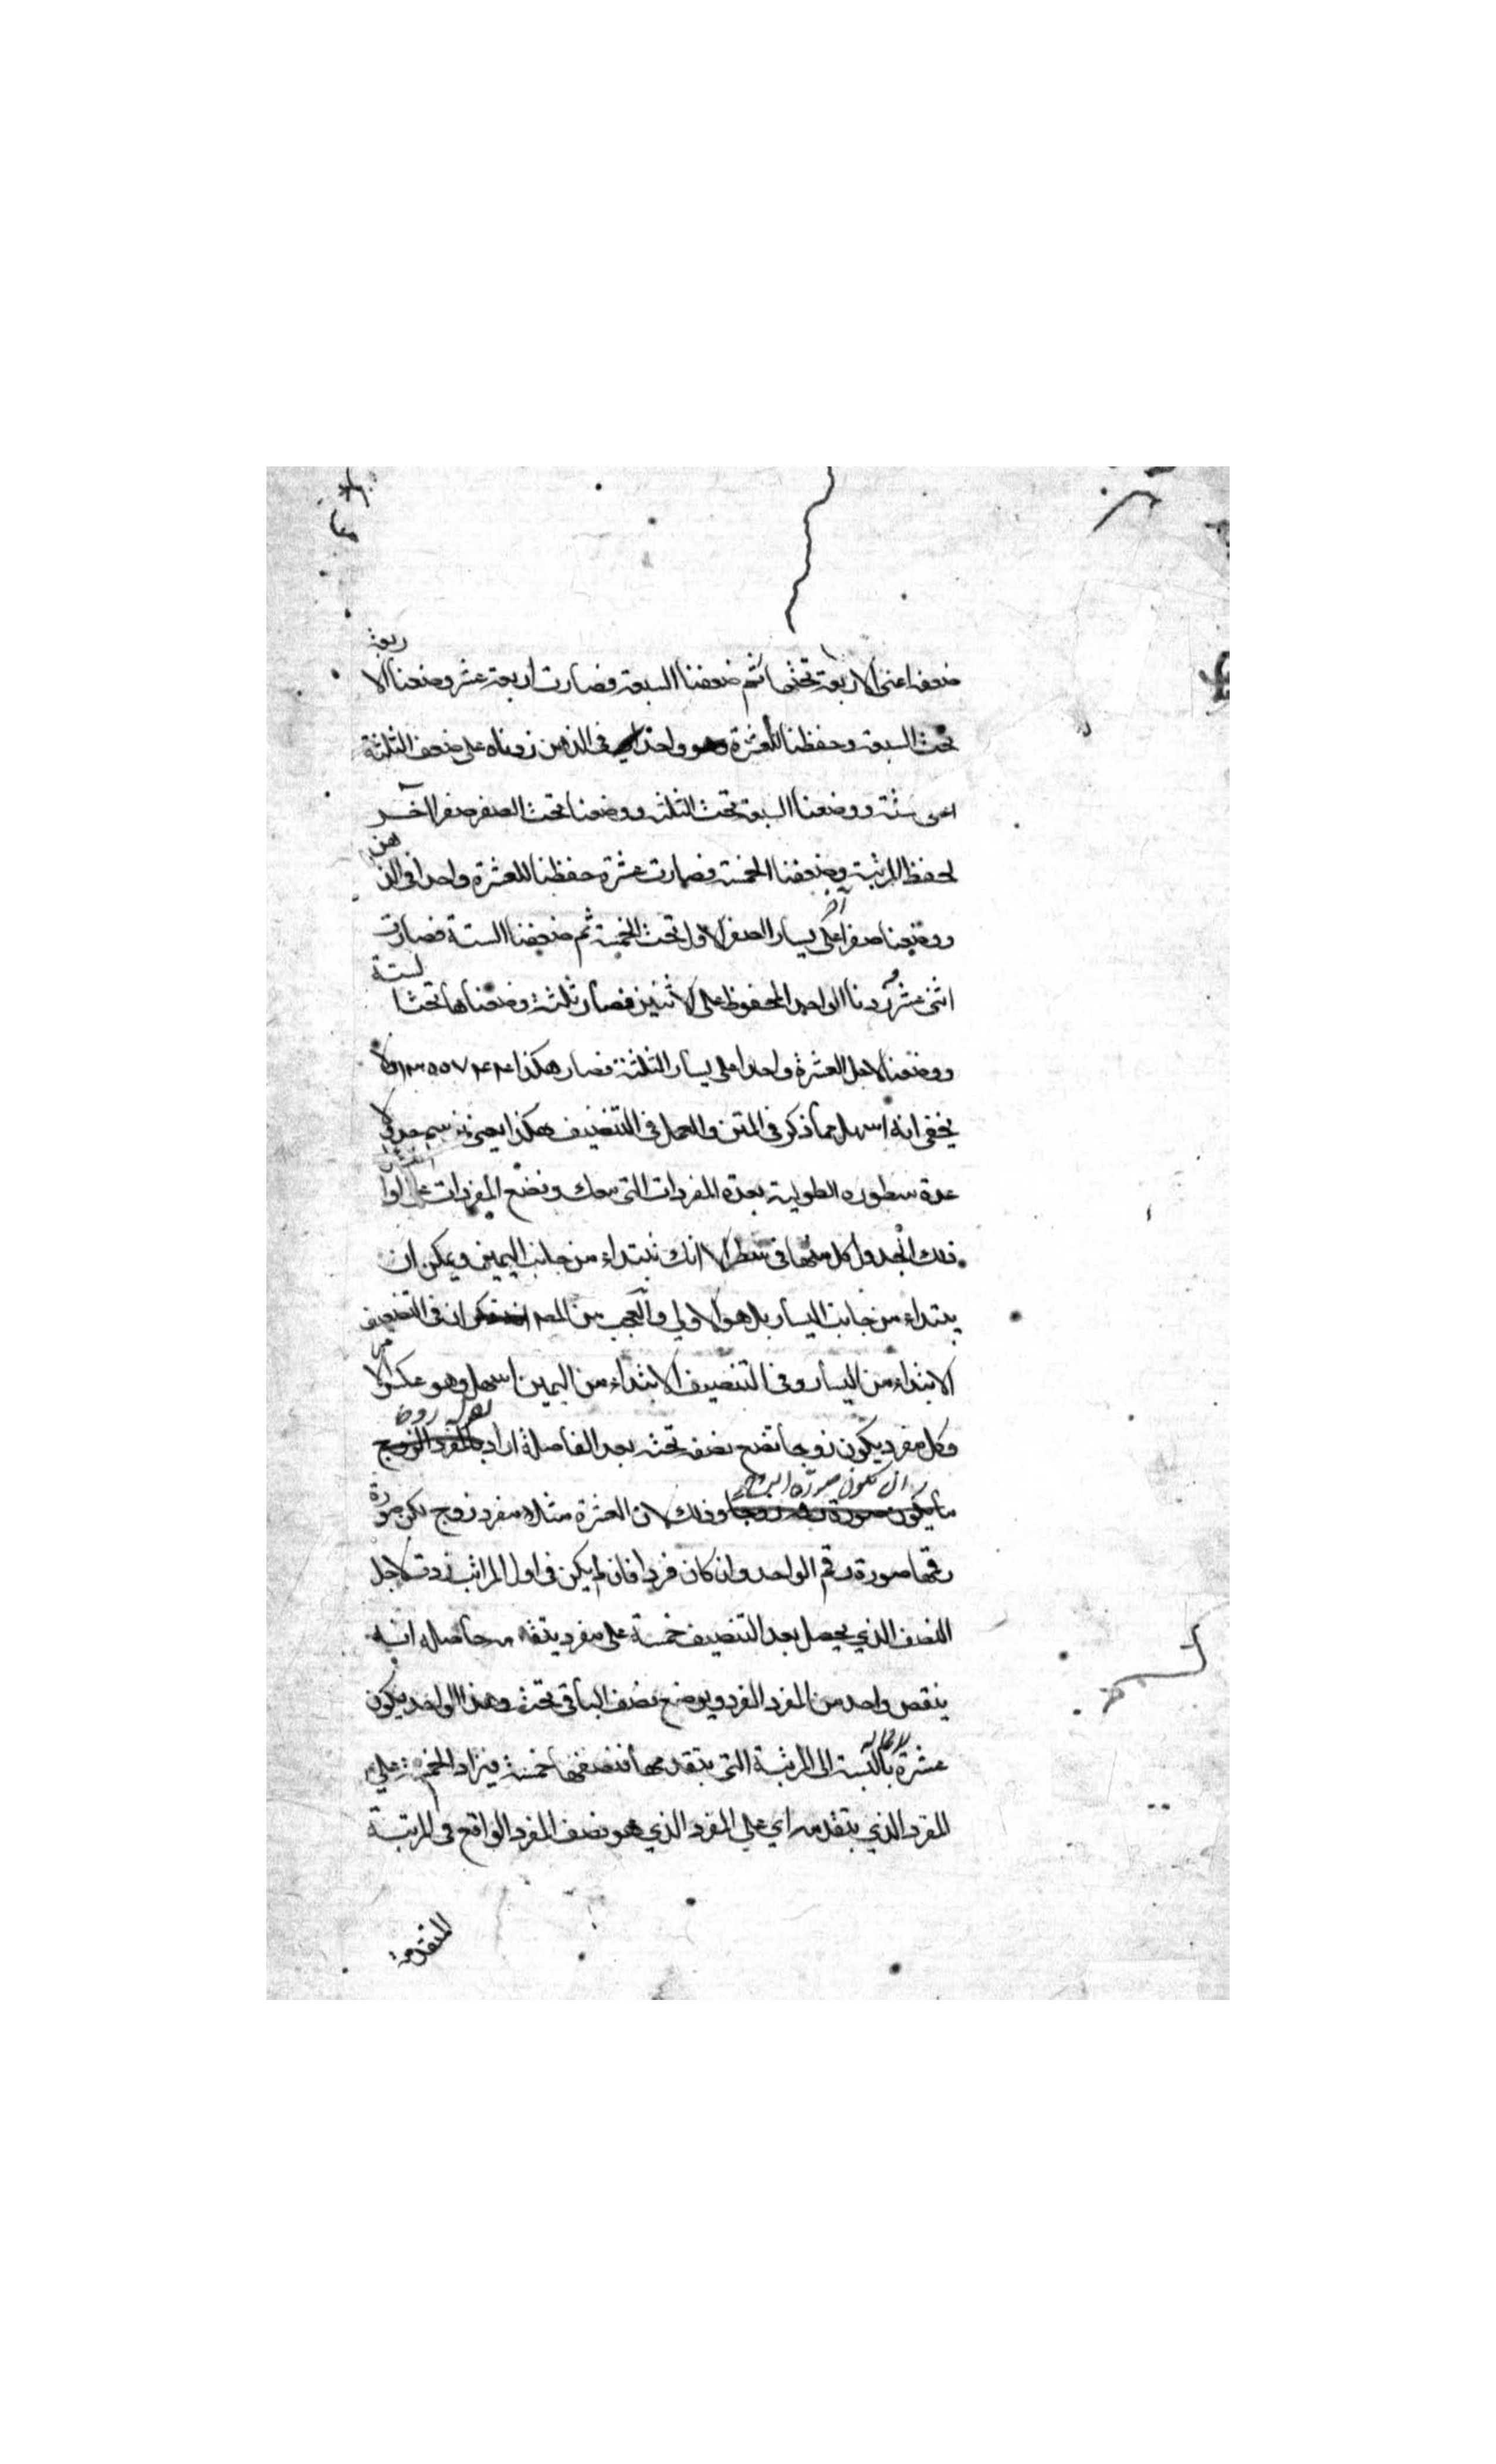 ضعفه اعنى الاربعة تحتها ثم ضعفنا السبعة فصارت اربعة عشر وضعنا الاربعة
تحت السبعة وحفظنا للعشرة واحدا في الذهن زدناه على ضعف الثلثة
اعنى ستة ووضعنا السبعة تحت الثلثة ووضعنا تحت الصفر صفرا آخر
لحفظ المرتبة وضعفنا الخمسة فصارت عشرة حفظنا للعشرة واحدا في الذهن
ووضعنا صفرا آخر على يسار الصفر الاول تحت الخمسة ثم ضعفنا الستة فصارت
اثنى عشر وزدنا الواحد المحفوظ على الاثنين فصار ثلثة وضعناها تحت الستة
ووضعنا لاجل العشرة واحدا على يسار الثلثة فصار هكذا ولا
يخفى انه اسهل مما ذكر في المتن والعمل في التنصيف هكذا يعنى جدولا
عدة سطوره الطولية بعدة المفردات التى معك ونضع المفردات على
ذلك الجدول كل منها في سطر الا انك تبتداء من جانب اليمين ويمكن ان
يبتداء من جانب اليسار بل هو الاولى والعجب من المص ان في التضعيف
الابتداء من اليسار وفي التنصيف الابتداء من اليمين اسهل وهو عكس الامر
وكل مفرد يكون زوجا تضع نصفه تحته بعد الفاصلة اراد
وذلك لان العشرة مثلا مفرد زوج لكن صورة
رقمها صورة رقم الواحد وان كان فردا فان لم يكن في اول المراتب زدت لاجل
النصف الذي يحصل بعد التنصيف خمسة على مفرد يتقدمه حاصله انه
ينقص واحد من المفرد الفرد ويوضع نصف الباقى تحته وهذا الواحد يكون
عشرة بالنسبة الى المرتبة التى يتقدمها فنصفها خمسة فيزاد الخمسة على
المفرد الذي يتقدمه اي على المفرد الذي هو نصف المفرد الواقع في المرتبة
المتقدمة